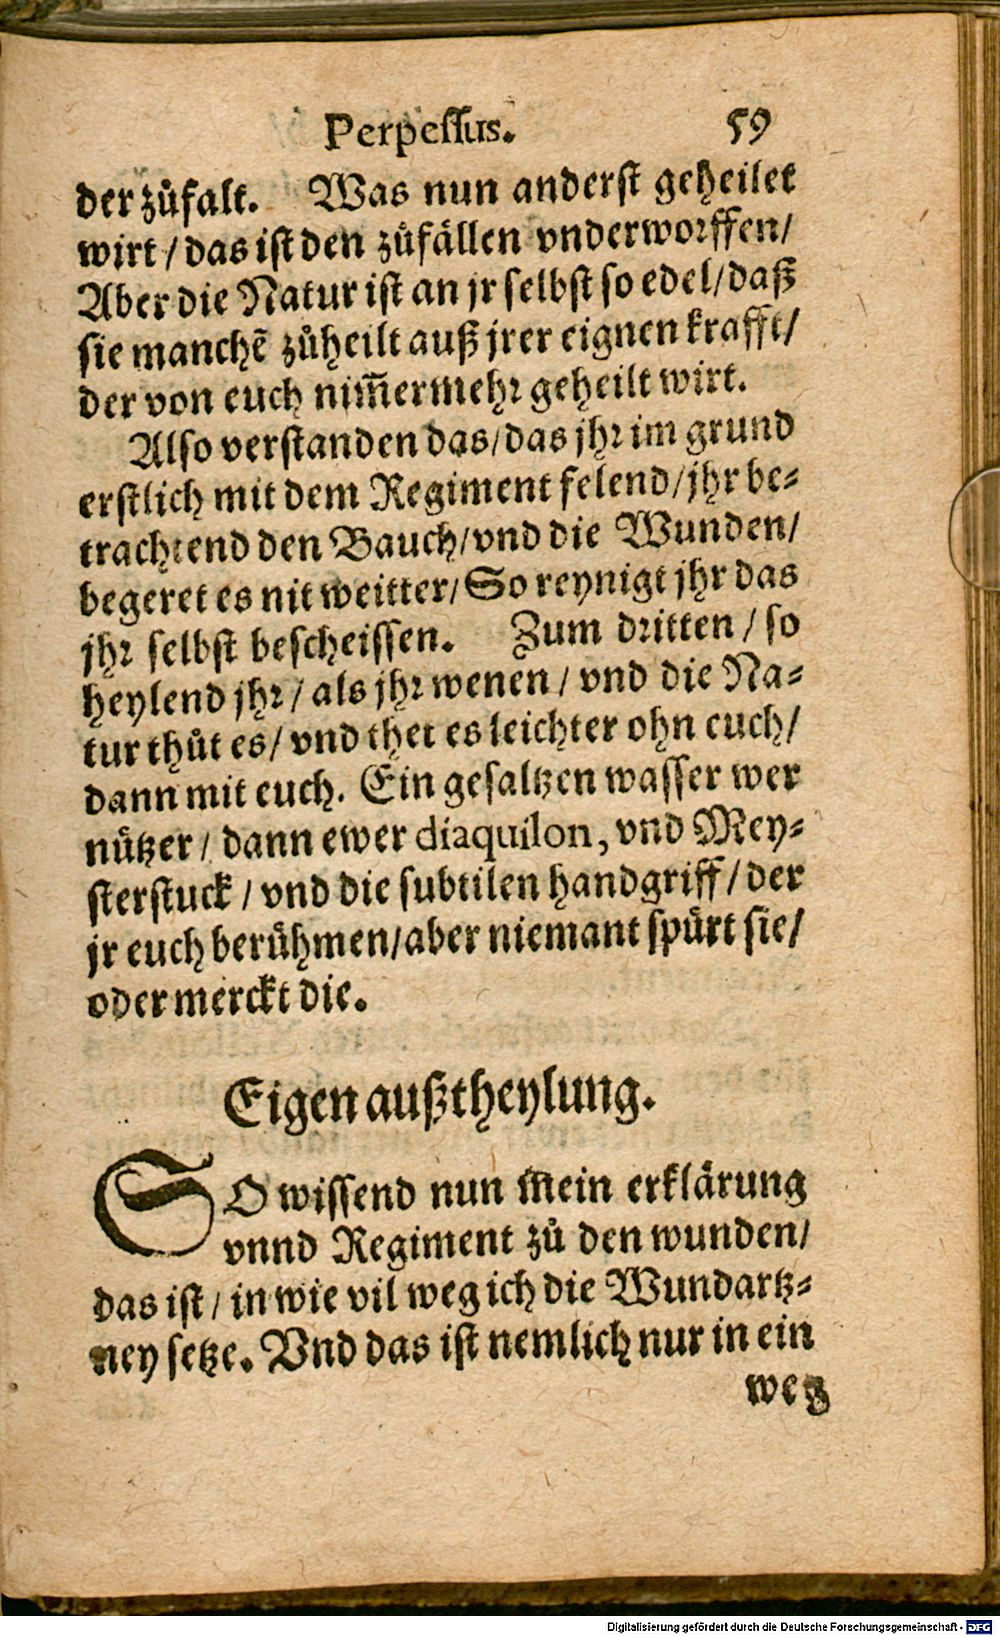 Perpessus. 59
der zůfalt. Was nun anderst geheilet
wirt / das ist den zůfällen vnderworffen /
Aber die Natur ist an jr selbst so edel / daß
sie manchē zůheilt auß jrer eignen krafft /
der von euch nim̄ermehr geheilt wirt.
Also verstanden das / das jhr im grund
erstlich mit dem Regiment felend / jhr be-
trachtend den Bauch / vnd die Wunden /
begeret es nit weitter / So reynigt jhr das
jhr selbst bescheissen. Zum dritten / so
heylend jhr / als jhr wenen / vnd die Na-
tur thůt es / vnd thet es leichter ohn euch /
dann mit euch. Ein gesaltzen wasser wer
nützer / dann ewer diaquilon, vnd Mey-
sterstuck / vnd die subtilen handgriff / der
jr euch berühmen / aber niemant spürt sie /
oder merckt die.
Eigen außtheylung.
SO wissend nun mein erklärung
vnnd Regiment zů den wunden /
das ist / in wie vil weg ich die Wundartz-
ney setze. Vnd das ist nemlich nur in ein
weg
Digitalisierung gefördert durch die Deutsche Forschungsgemeinschaft - DFG